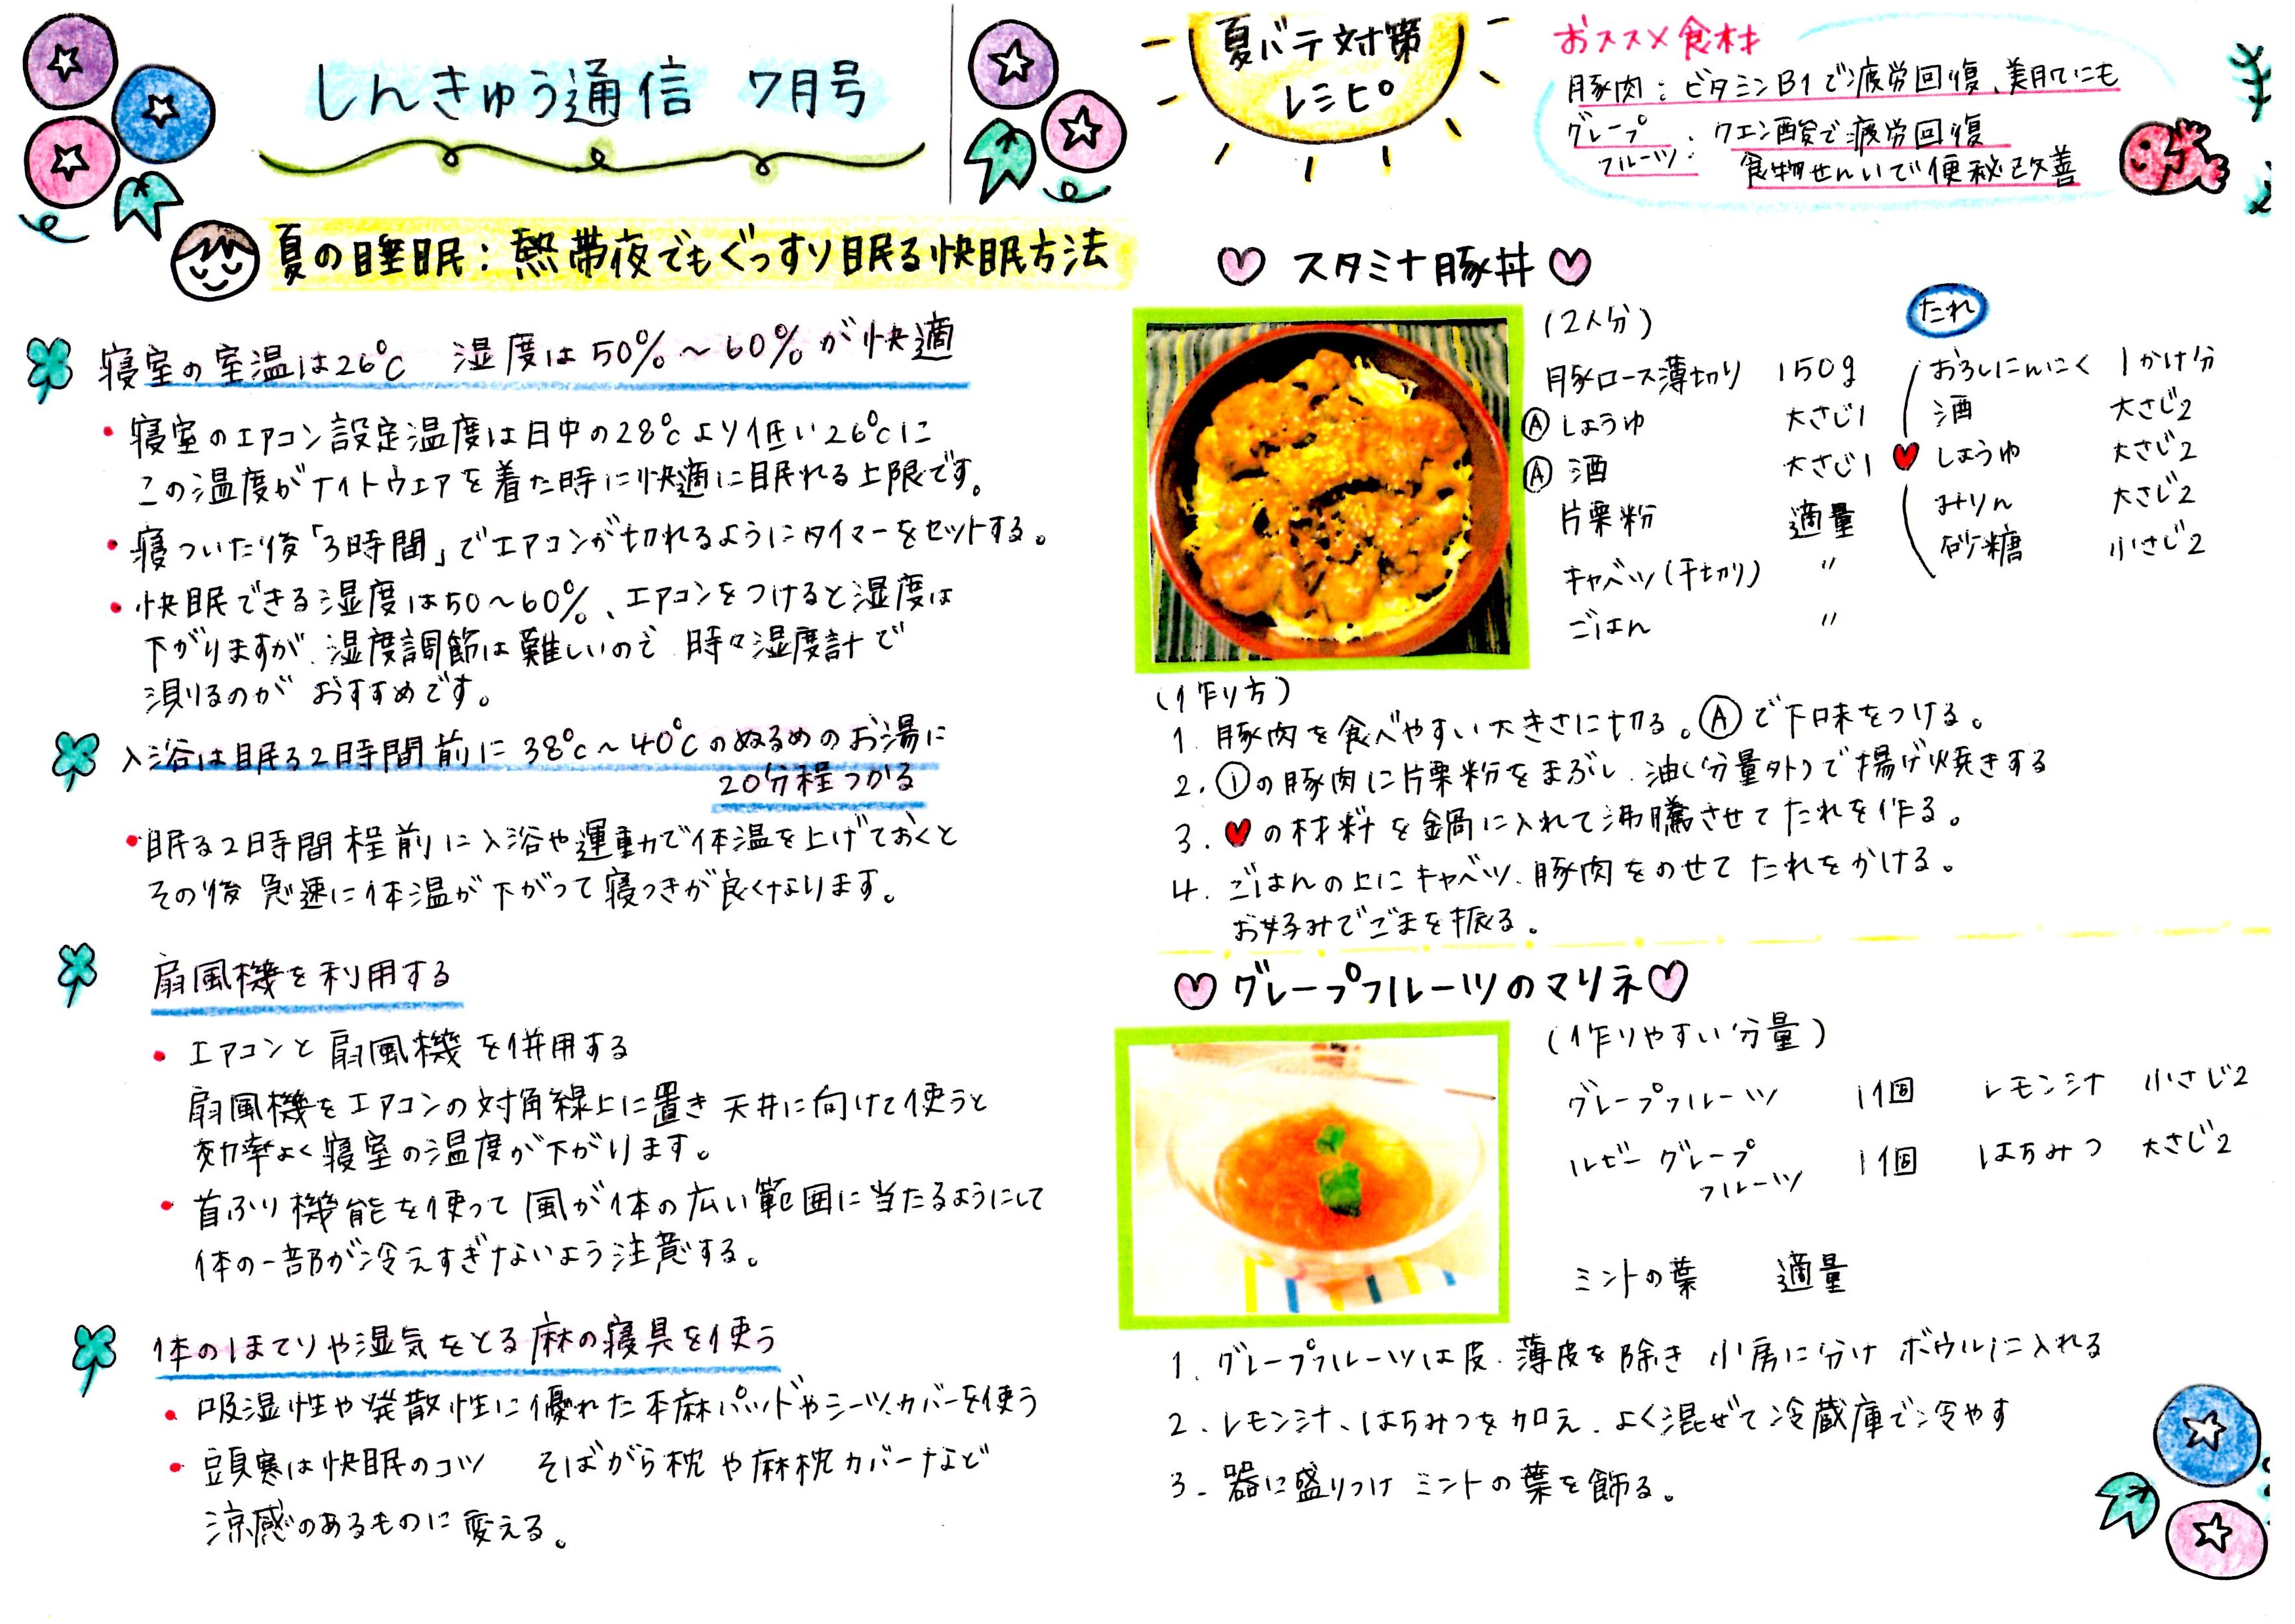 しんきゅう通信 7月号
夏の睡眠：熱帯夜でもぐっすり眠る快眠方法
寝室の室温は26℃ 湿度は50%～60%が快適
・寝室のエアコン設定温度は日中の28℃より低い26℃に
この温度がナイトウエアを着た時に快適に眠れる上限です。
・寝ついた後「3時間」でエアコンが切れるようにタイマーをセットする。
・快眠できる湿度は50～60%、エアコンをつけると湿度は
下がりますが、湿度調節は難しいので 時々湿度計で
測るのが おすすめです。
入浴は眠る2時間前に 38℃～40℃のぬるめのお湯に
20分程つかる
・眠る2時間程前に入浴や運動で体温を上げておくと
その後 急速に体温が下がって寝つきが良くなります。
扇風機を利用する
・エアコンと扇風機を併用する
扇風機をエアコンの対角線上に置き 天井に向けて使うと
効率よく寝室の温度が下がります。
・首ふり機能を使って 風が体の広い範囲に当たるようにして
体の一部が冷えすぎないよう注意する。
体のほてりや湿気をとる麻の寝具を使う
・吸湿性や発散性に優れた本麻パッドやシーツ、カバーを使う
・頭寒は快眠のコツ そばがら枕や麻枕カバーなど
涼感のあるものに変える。
夏バテ対策
レシピ
おススメ食材
豚肉：ビタミンB1で疲労回復、美肌にも
グレープ
フルーツ：クエン酸で疲労回復
食物せんいで便秘改善
スタミナ豚丼
(2人分)
豚ロース薄切り 150g
Ⓐしょうゆ 大さじ1
Ⓐ酒 大さじ1
片栗粉 適量
キャベツ(千切り) 〃
ごはん 〃
たれ
おろしにんにく 1かけ分
酒 大さじ2
しょうゆ 大さじ2
みりん 大さじ2
砂糖 小さじ2
(作り方)
1. 豚肉を食べやすい大きさに切る。Ⓐで下味をつける。
2. ①の豚肉に片栗粉をまぶし、油(分量外)で揚げ焼きする
3. ♥の材料を鍋に入れて沸騰させてたれを作る。
4. ごはんの上にキャベツ、豚肉をのせて たれをかける。
お好みでごまを振る。
グレープフルーツのマリネ
(作りやすい分量)
グレープフルーツ 1個 レモン汁 小さじ2
ルビーグレープ
フルーツ 1個 はちみつ 大さじ2
ミントの葉 適量
1. グレープフルーツは皮、薄皮を除き 小房に分け ボウルに入れる
2. レモン汁、はちみつを加え、よく混ぜて冷蔵庫で冷やす
3. 器に盛りつけ ミントの葉を飾る。